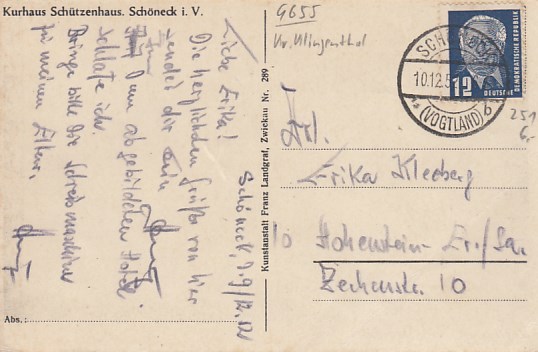 Kurhaus Schützenhaus. Schöneck i. V.
9655
Kr. Klingenthal
Schöneck, d. 9/12.52
Liebe Erika!
Die herzlichsten Grüße von hier
sendet dir Dein
In dem abgebildeten Hotel
schlafe ich.
Bringe bitte die Schreibmaschine
zu meinen Eltern.
Abs.:
Kunstanstalt Franz Landgraf, Zwickau Nr. 289
SCHÖNECK
10.12.5
(VOGTLAND)
b
12
DEUTSCHE
DEMOKRATISCHE REPUBLIK
251
6,-
Frl.
Erika Kleeberg
10 Hohenstein-Er./Sa.
Zechenstr. 10